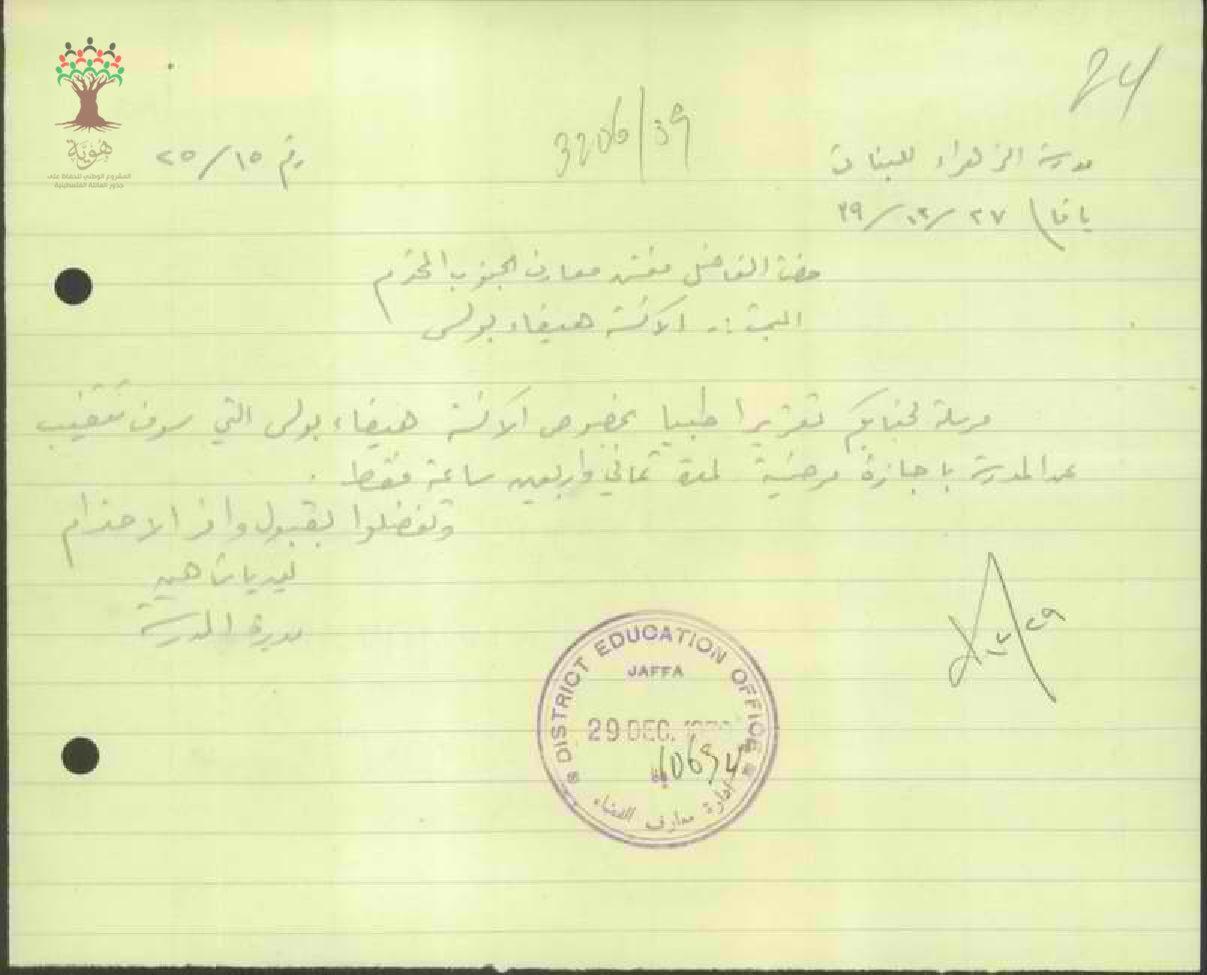 24
هوية
المشروع الوطني للحفاظ على
جذور العائلة الفلسطينية
مدرسة الزهراء للبنات
3206/39
رقم ٢٥/١٥
يافا ٢٧/١٢/٣٩
حضرة الفاضل مفتش معارف الجنوب المحترم
البحث :- الآنسة هيفاء بولس
مرسلة لجنابكم تقريرا طبيا بخصوص الآنسة هيفاء بولس التي سوف تتغيب
عن المدرسة باجازة مرضية لمدة ثماني واربعين ساعة فقط .
وتفضلوا بقبول وافر الاحترام
ليديا شاهين
مديرة المدرسة
DISTRICT EDUCATION OFFICE
JAFFA
29 DEC. 1939
ادارة معارف القضاء